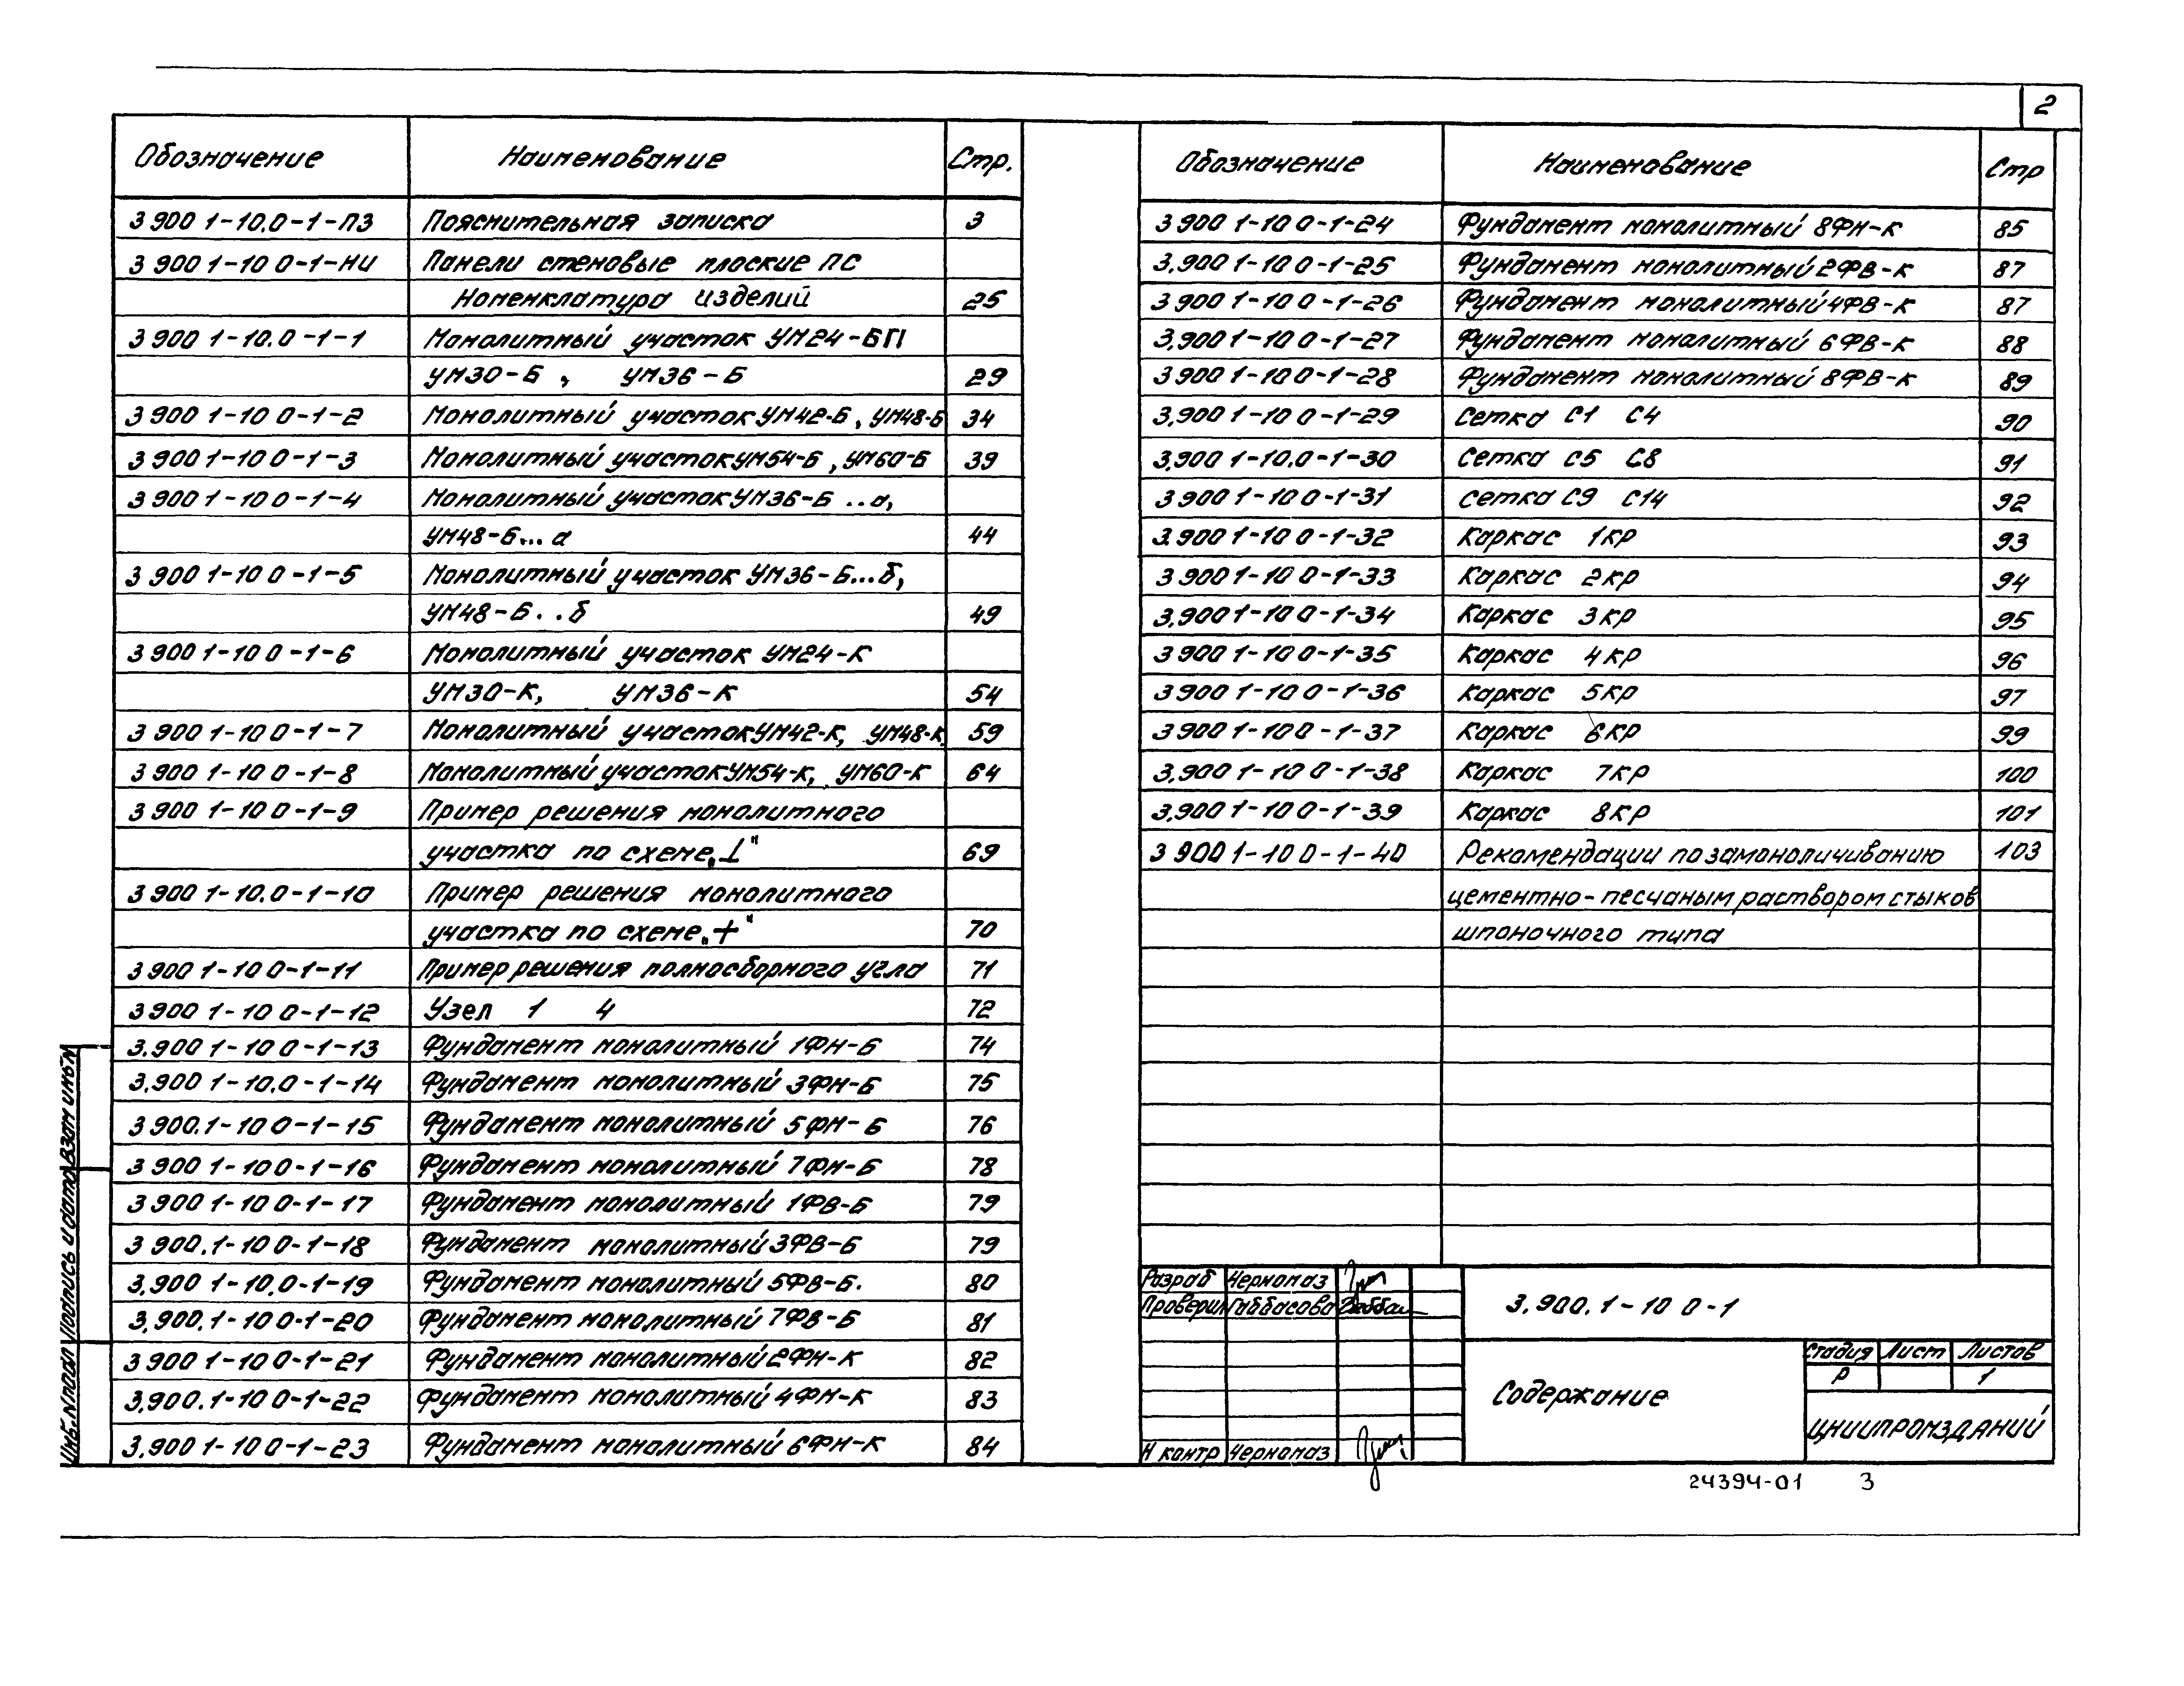 2
Обозначение Наименование Стр.
3 900 1-10.0-1-ПЗ Пояснительная записка 3
3 900 1-10 0-1-НИ Панели стеновые плоские ПС
Номенклатура изделий 25
3 900 1-10.0-1-1 Монолитный участок УМ24-БП
УМ30-Б, УМ36-Б 29
3 900 1-10 0-1-2 Монолитный участок УМ42-Б, УМ48-Б 34
3 900 1-10 0-1-3 Монолитный участок УМ54-Б, УМ60-Б 39
3 900 1-10 0-1-4 Монолитный участок УМ36-Б ..а,
УМ48-Б...а 44
3 900 1-10 0-1-5 Монолитный участок УМ36-Б...б,
УМ48-Б..б 49
3 900 1-10 0-1-6 Монолитный участок УМ24-К
УМ30-К, УМ36-К 54
3 900 1-10 0-1-7 Монолитный участок УМ42-К, УМ48-К, 59
3 900 1-10 0-1-8 Монолитный участок УМ54-К, УМ60-К 64
3 900 1-10 0-1-9 Пример решения монолитного
участка по схеме „⊥" 69
3 900 1-10.0-1-10 Пример решения монолитного
участка по схеме „+" 70
3 900 1-10 0-1-11 Пример решения полносборного угла 71
3 900 1-10 0-1-12 Узел 1 4 72
3.900 1-10 0-1-13 Фундамент монолитный 1ФН-Б 74
3.900 1-10.0-1-14 Фундамент монолитный 3ФН-Б 75
3 900.1-10 0-1-15 Фундамент монолитный 5ФН-Б 76
3 900 1-10 0-1-16 Фундамент монолитный 7ФН-Б 78
3 900 1-10 0-1-17 Фундамент монолитный 1ФВ-Б 79
3 900.1-10 0-1-18 Фундамент монолитный 3ФВ-Б 79
3.900 1-10.0-1-19 Фундамент монолитный 5ФВ-Б. 80
3.900.1-10 0-1-20 Фундамент монолитный 7ФВ-Б 81
3 900 1-10 0-1-21 Фундамент монолитный 2ФН-К 82
3.900.1-10 0-1-22 Фундамент монолитный 4ФН-К 83
3.900 1-10 0-1-23 Фундамент монолитный 6ФН-К 84
Обозначение Наименование Стр
3.900 1-10 0-1-24 Фундамент монолитный 8ФН-К 85
3.900 1-10 0-1-25 Фундамент монолитный 2ФВ-К 87
3 900 1-10 0-1-26 Фундамент монолитный 4ФВ-К 87
3.900 1-10 0-1-27 Фундамент монолитный 6ФВ-К 88
3 900 1-10 0-1-28 Фундамент монолитный 8ФВ-К 89
3.900 1-10 0-1-29 Сетка С1 С4 90
3.900 1-10.0-1-30 Сетка С5 С8 91
3 900 1-10 0-1-31 Сетка С9 С14 92
3.900 1-10 0-1-32 Каркас 1КР 93
3 900 1-10 0-1-33 Каркас 2КР 94
3.900 1-10 0-1-34 Каркас 3КР 95
3 900 1-10 0-1-35 Каркас 4КР 96
3 900 1-10 0-1-36 Каркас 5КР 97
3 900 1-10 0-1-37 Каркас 6КР 99
3.900 1-10 0-1-38 Каркас 7КР 100
3.900 1-10 0-1-39 Каркас 8КР 101
3 900 1-10 0-1-40 Рекомендации по замоноличиванию 103
цементно-песчаным раствором стыков
шпоночного типа
Разраб Черномаз
Проверил Габбасова
Н контр Черномаз
3.900.1-10 0-1
Содержание
Стадия Лист Листов
Р 1
ЦНИИПРОМЗДАНИЙ
24394-01 3
Инв.N подл Подпись и дата Взам инв.N